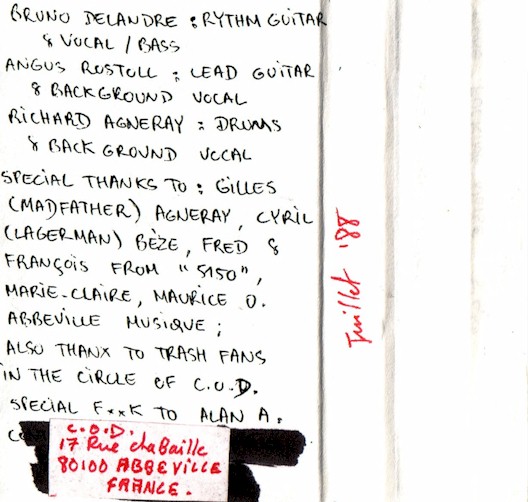 BRUNO DELANDRE : RYTHM GUITAR
& VOCAL / BASS
ANGUS ROSTOLL : LEAD GUITAR
& BACKGROUND VOCAL
RICHARD AGNERAY : DRUMS
& BACK GROUND VOCAL
SPECIAL THANKS TO : GILLES
(MADFATHER) AGNERAY, CYRIL
(LAGERMAN) BÈZE, FRED &
FRANÇOIS FROM "5150",
MARIE-CLAIRE, MAURICE O.
ABBEVILLE MUSIQUE ;
ALSO THANX TO TRASH FANS
IN THE CIRCLE OF C.O.D.
SPECIAL F**K TO ALAN A.
C.O.D.
17 Rue chaBaille
80100 ABBEVILLE
FRANCE.
Juillet '88